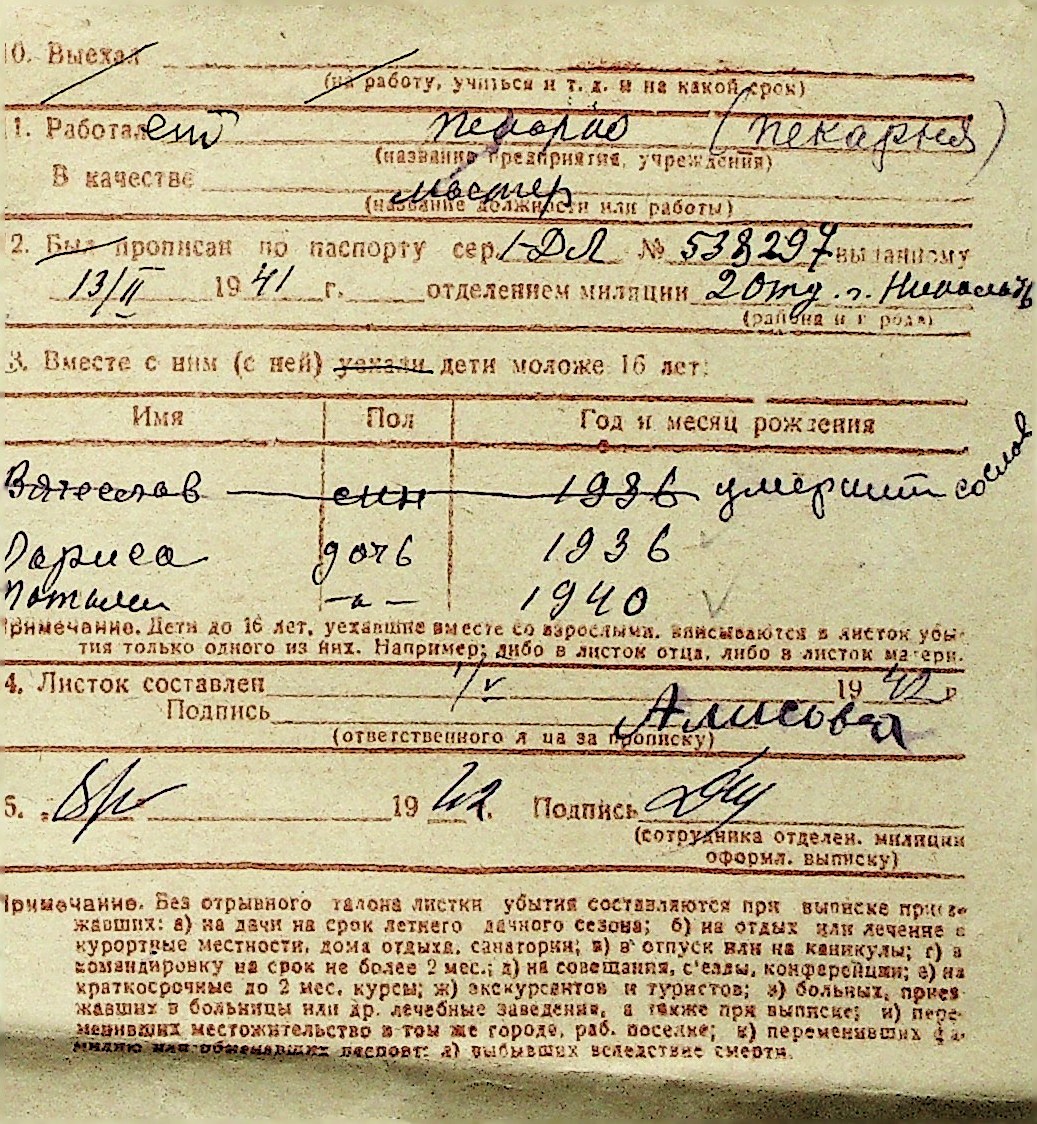 10. Выехал
(на работу, учиться и т. д. и на какой срок)
11. Работал ет пекарно (пекарня)
(название предприятия, учреждения)
В качестве мастер
(название должности или работы)
12. Был прописан по паспорту сер. 1-ДЛ № 538297 выданному
13/II 1941 г. отделением милиции 2 отд. г.
(района и города)
3. Вместе с ним (с ней) уехали дети моложе 16 лет:
Имя Пол Год и месяц рождения
Вячеслав сын 1936 умерший со слов
Лариса дочь 1936
Наталия -"- 1940
Примечание. Дети до 16 лет, уехавшие вместе со взрослыми, вписываются в листок убы-
тия только одного из них. Например; либо в листок отца, либо в листок матери.
4. Листок составлен 1/V 1942 г.
Подпись Алисова
(ответственного лица за прописку)
5. 1942. Подпись
(сотрудника отделен. милиции
оформл. выписку)
Примечание. Без отрывного талона листки убытия составляются при выписке приез-
жавших: а) на дачи на срок летнего дачного сезона; б) на отдых или лечение в
курортные местности, дома отдыха, санатории; в) в отпуск или на каникулы; г) в
командировку на срок не более 2 мес.; д) на совещания, с'езды, конференции; е) на
краткосрочные до 2 мес. курсы; ж) экскурсантов и туристов; з) больных, приез-
жавших в больницы или др. лечебные заведения, а также при выписке; и) пере-
менивших местожительство в том же городе, раб. поселке; к) переменивших фа-
милию или обменявших паспорт; л) выбывших вследствие смерти.